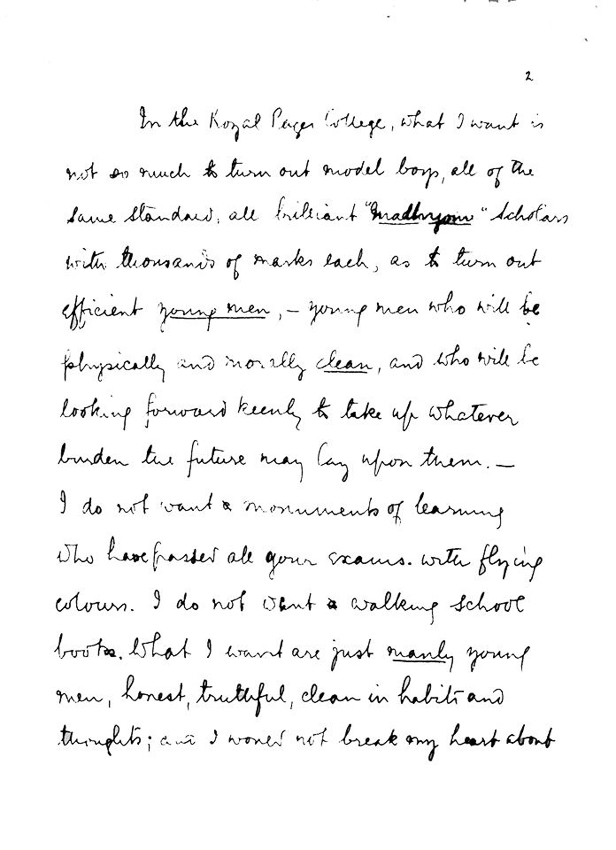 2
In the Royal Pages College, what I want is
not so much to turn out model boys, all of the
same standard, all brilliant "Madhyom" Scholars
with thousands of marks each, as to turn out
efficient young men, – young men who will be
physically and morally clean, and who will be
looking forward keenly to take up whatever
burden the future may lay upon them. —
I do not want a monuments of learning
who have passed all your exams. with flying
colours. I do not want a walking school
books. What I want are just manly young
men, honest, truthful, clean in habits and
thoughts; and I would not break my heart about